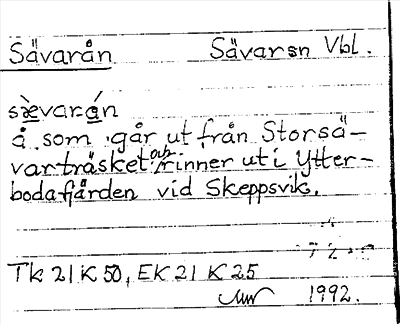 Sävarån Sävar sn Vbl.
sævar-án
å som går ut från Storsä-
varträsket och rinner ut i Ytter-
bodafjärden vid Skeppsvik.
Tk 21 K 50, EK 21 K 25
1992.